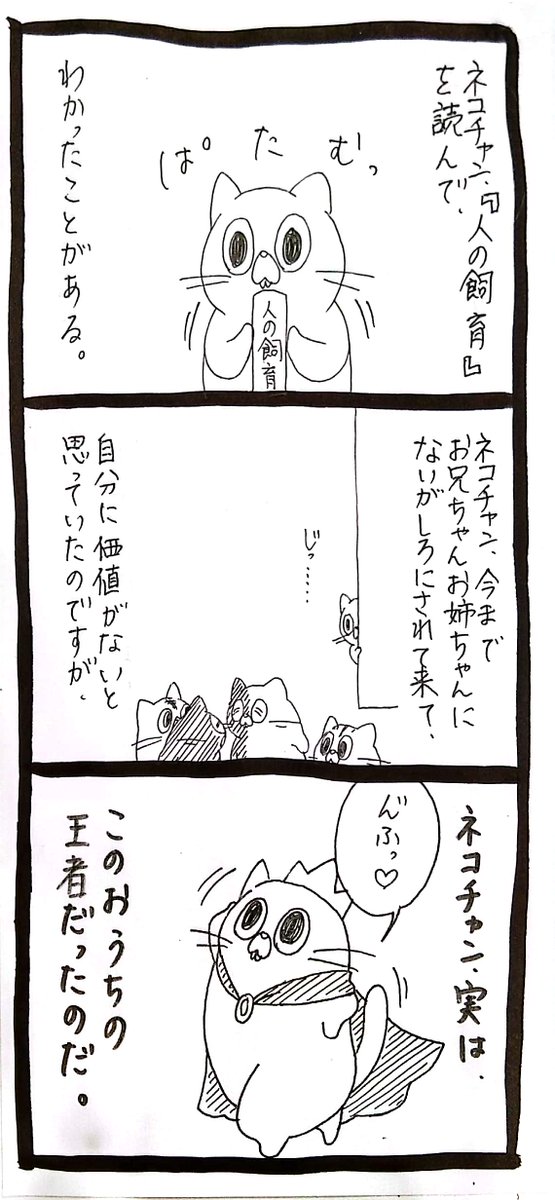 ネコチャン、『人の飼育』
を読んで、
ぱたむっ
人の飼育
わかったことがある。
ネコチャン、今まで
お兄ちゃんお姉ちゃんに
ないがしろにされて来て、
じっ……
自分に価値がないと
思っていたのですが、
ネコチャン、実は、
んふっ♡
このおうちの
王者だったのだ。